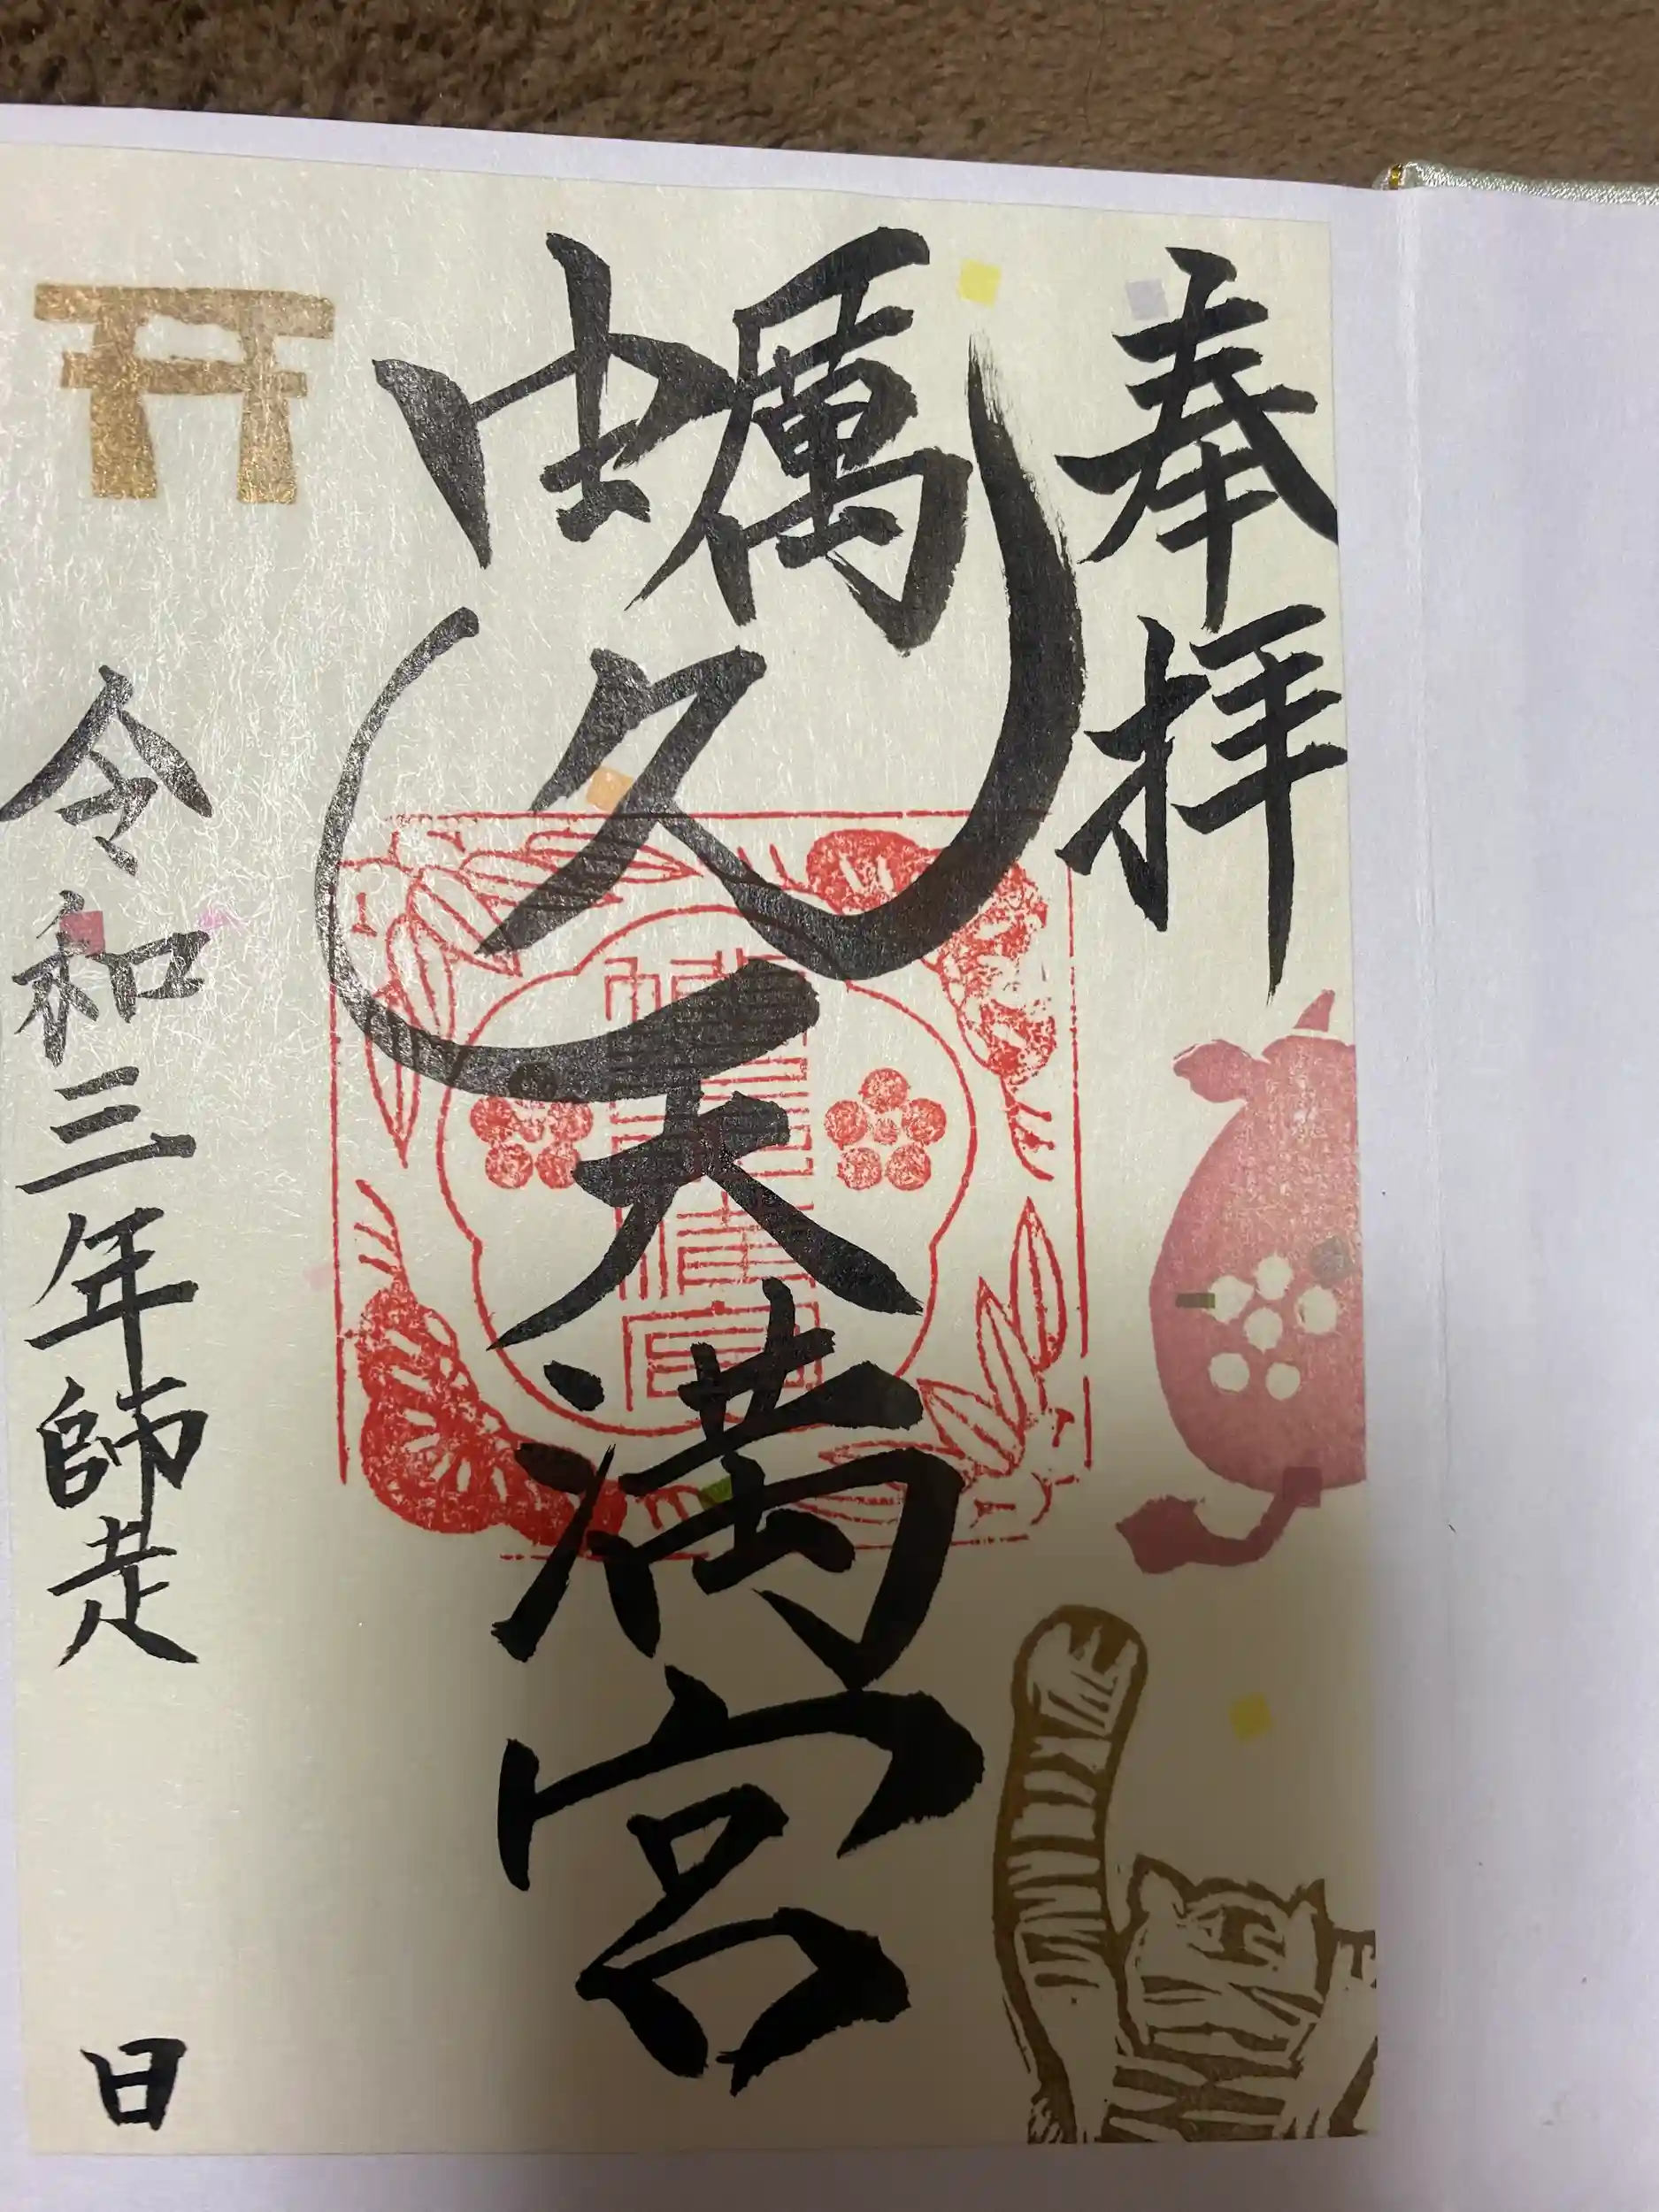 奉拝
蠣久天満宮
令和三年師走 日